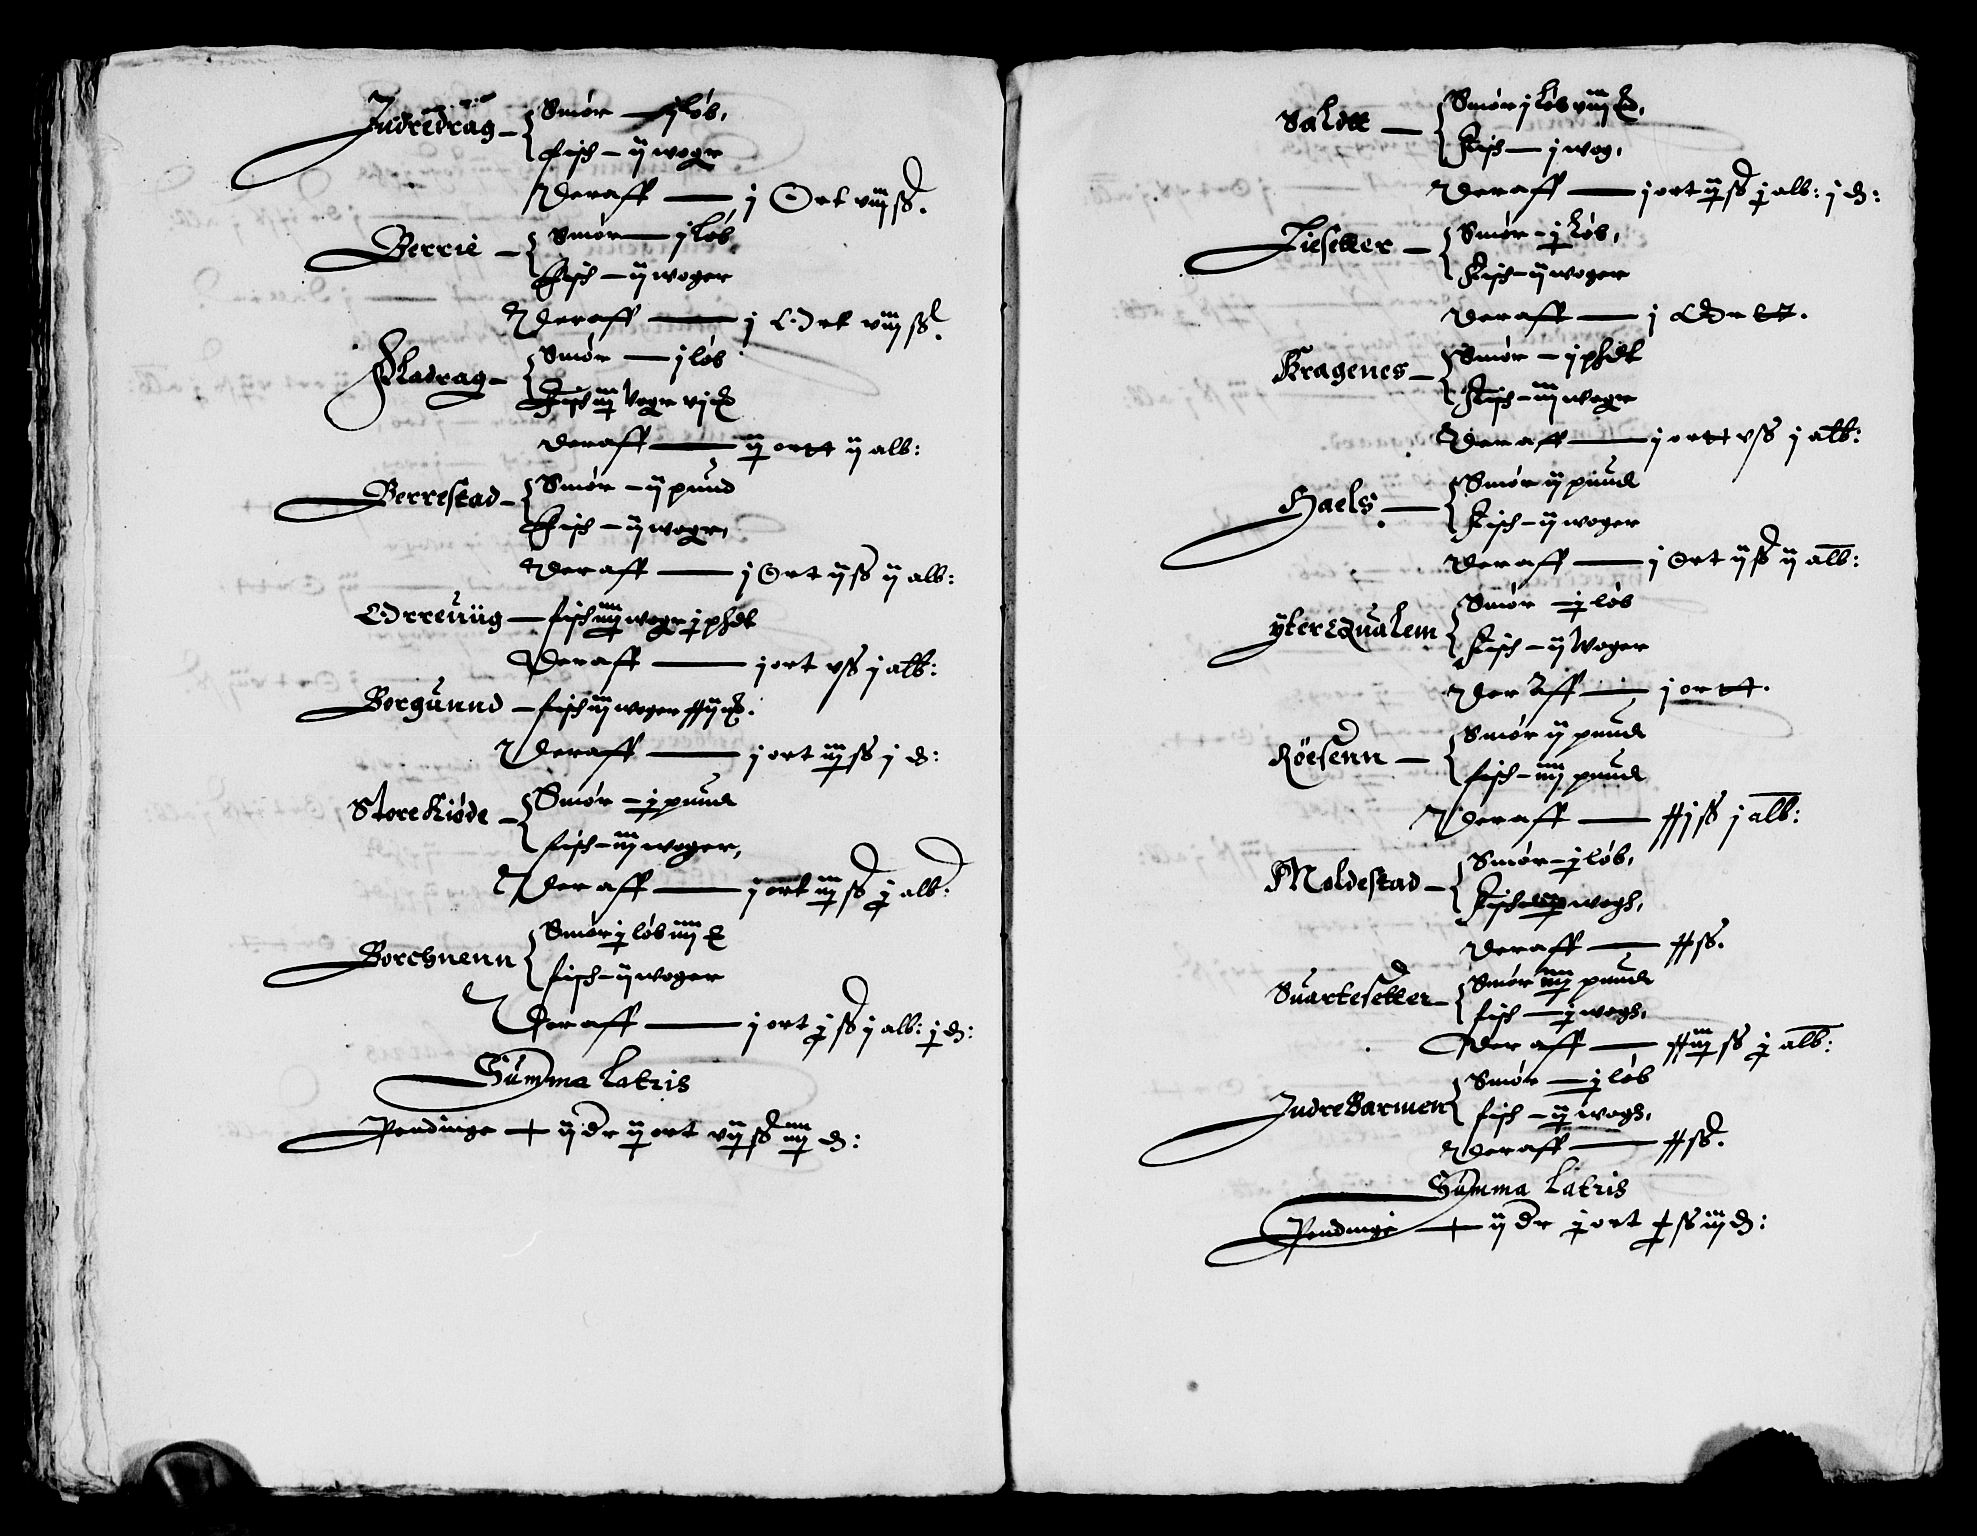 Indredrag – Smór – j lób,
fisch – ij wogr
Deraff — j Ort viij ſs.
Berrie – Smór – j lób
Fisch – ij woger
Deraff — j Ort viij ſs.
Fladrag – Smór — j lób
Fisch iij vogr vj
Deraff — ij ortt ij alb:
Berrestad – Smór – ij pund
Fisch – ij wogr,
Deraff — j Ort ij ſs ij alb:
Orreuiig – fisch iiij wogr j phdt
Deraff — j ort v ſs j alb:
Borgunnd – fisch iij woger
Deraff — j ort iij ſs j d:
Store Kióde – Smór – j pund
fisch – iij woger,
Deraff — j ort iij ſs j alb:
Borchnenn Smór j lób iiij
fisch – ij woger
Deraff — j ort j ſs j alb: j d:
Summa Latris
Pendinge – ij dr ij ort vij ſs iiij d:
Saldtt — Smór j lób viij
Fisch — j wog,
Deraff — j ort ij ſs j alb: j d:
Liesetter – Smór – j lób,
Fisch – ij woger
Deraff — j Ortt.
Kragenes – Smór – j phdt
Fisch – iij wogr
Deraff — j ortt v ſs j alb:
Haels. — Smór ij pund
Fisch – ij woger
Deraff — j Ort ij ſs ij alb:
ÿter Qualem Smór – j lób
Fisch – ij Woger
Deraff — j ortt.
Róesenn – Smór ij pund
fisch – iiij pund
Deraff — j ſs j alb:
Moldestad – Smór – j lób,
Fisch wogh,
Deraff — ſs.
Suartesetter – Smór iiij pund
fisch — j wogh,
Deraff — iij ſs j alb:
Indre Barmen Smór — j lób
fisch – ij wogh,
Deraff — ſs.
Summa Latris
Pendinge – ij dr j ort ſs iij d: